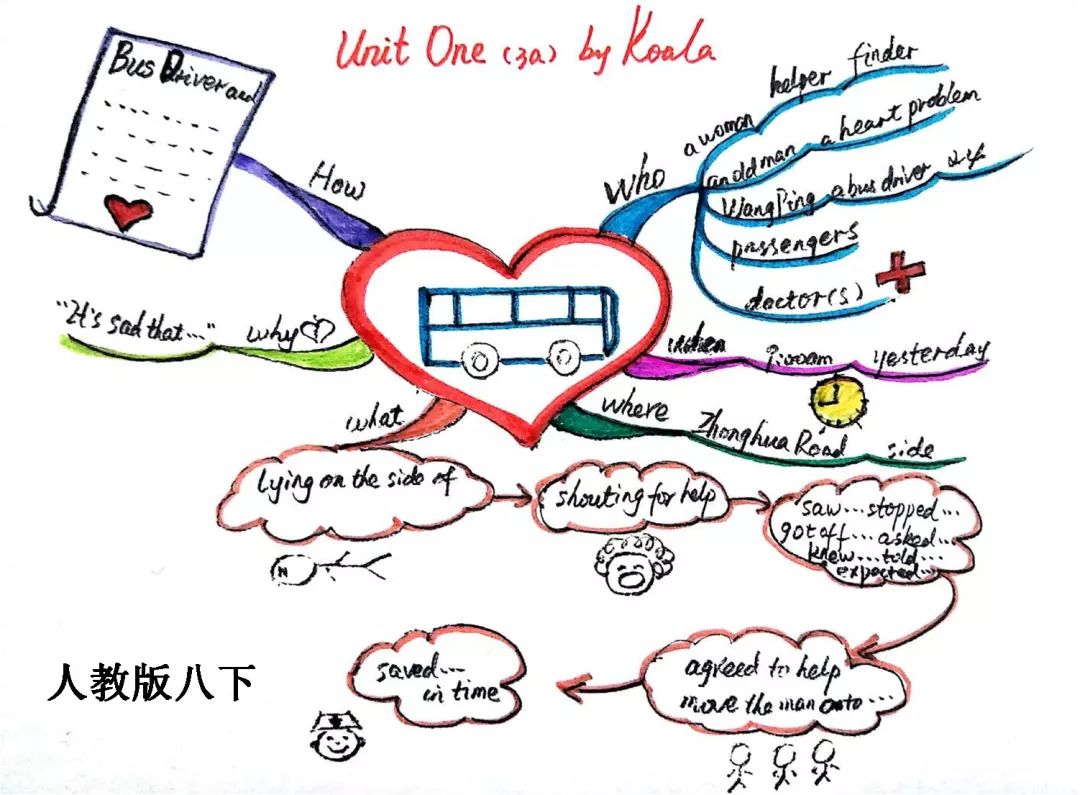 Unit One (3a) by Koala
Bus Driver and
How
who
a woman helper finder
an old man a heart problem
Wang Ping a bus driver 24
passengers
doctor(s)
when 9:00am yesterday
where Zhonghua Road side
"It's sad that..." why
what
lying on the side of
shouting for help
saw...stopped...
got off...asked...
knew...told...
expected...
agreed to help
move the man onto...
saved...
in time
人教版八下